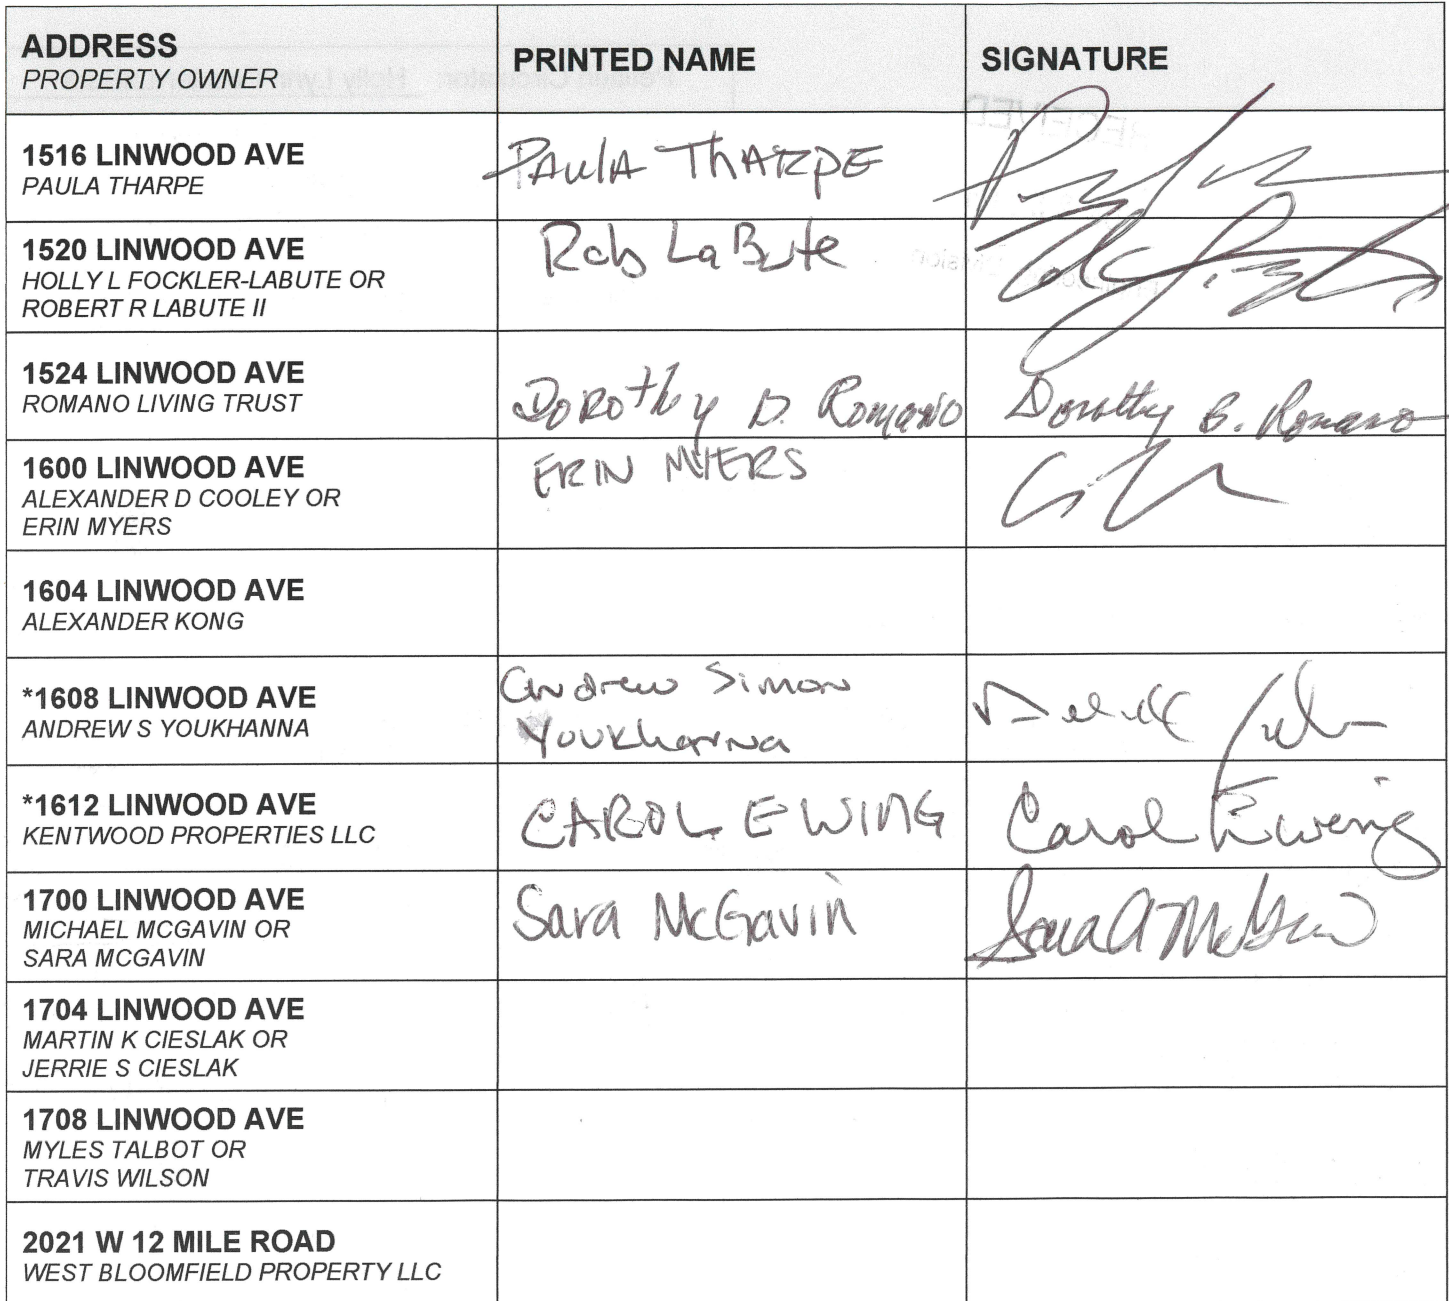 ADDRESS
PROPERTY OWNER
PRINTED NAME
SIGNATURE
1516 LINWOOD AVE
PAULA THARPE
PAULA THARPE
1520 LINWOOD AVE
HOLLY L FOCKLER-LABUTE OR
ROBERT R LABUTE II
Rob LaBute
1524 LINWOOD AVE
ROMANO LIVING TRUST
DOROthy D. ROMANO
Dorothy B. Romano
1600 LINWOOD AVE
ALEXANDER D COOLEY OR
ERIN MYERS
ERIN MYERS
1604 LINWOOD AVE
ALEXANDER KONG
*1608 LINWOOD AVE
ANDREW S YOUKHANNA
Andrew Simon
Youkhanna
*1612 LINWOOD AVE
KENTWOOD PROPERTIES LLC
CAROL EWING
Carol Ewing
1700 LINWOOD AVE
MICHAEL MCGAVIN OR
SARA MCGAVIN
Sara McGavin
Sara A McGavin
1704 LINWOOD AVE
MARTIN K CIESLAK OR
JERRIE S CIESLAK
1708 LINWOOD AVE
MYLES TALBOT OR
TRAVIS WILSON
2021 W 12 MILE ROAD
WEST BLOOMFIELD PROPERTY LLC